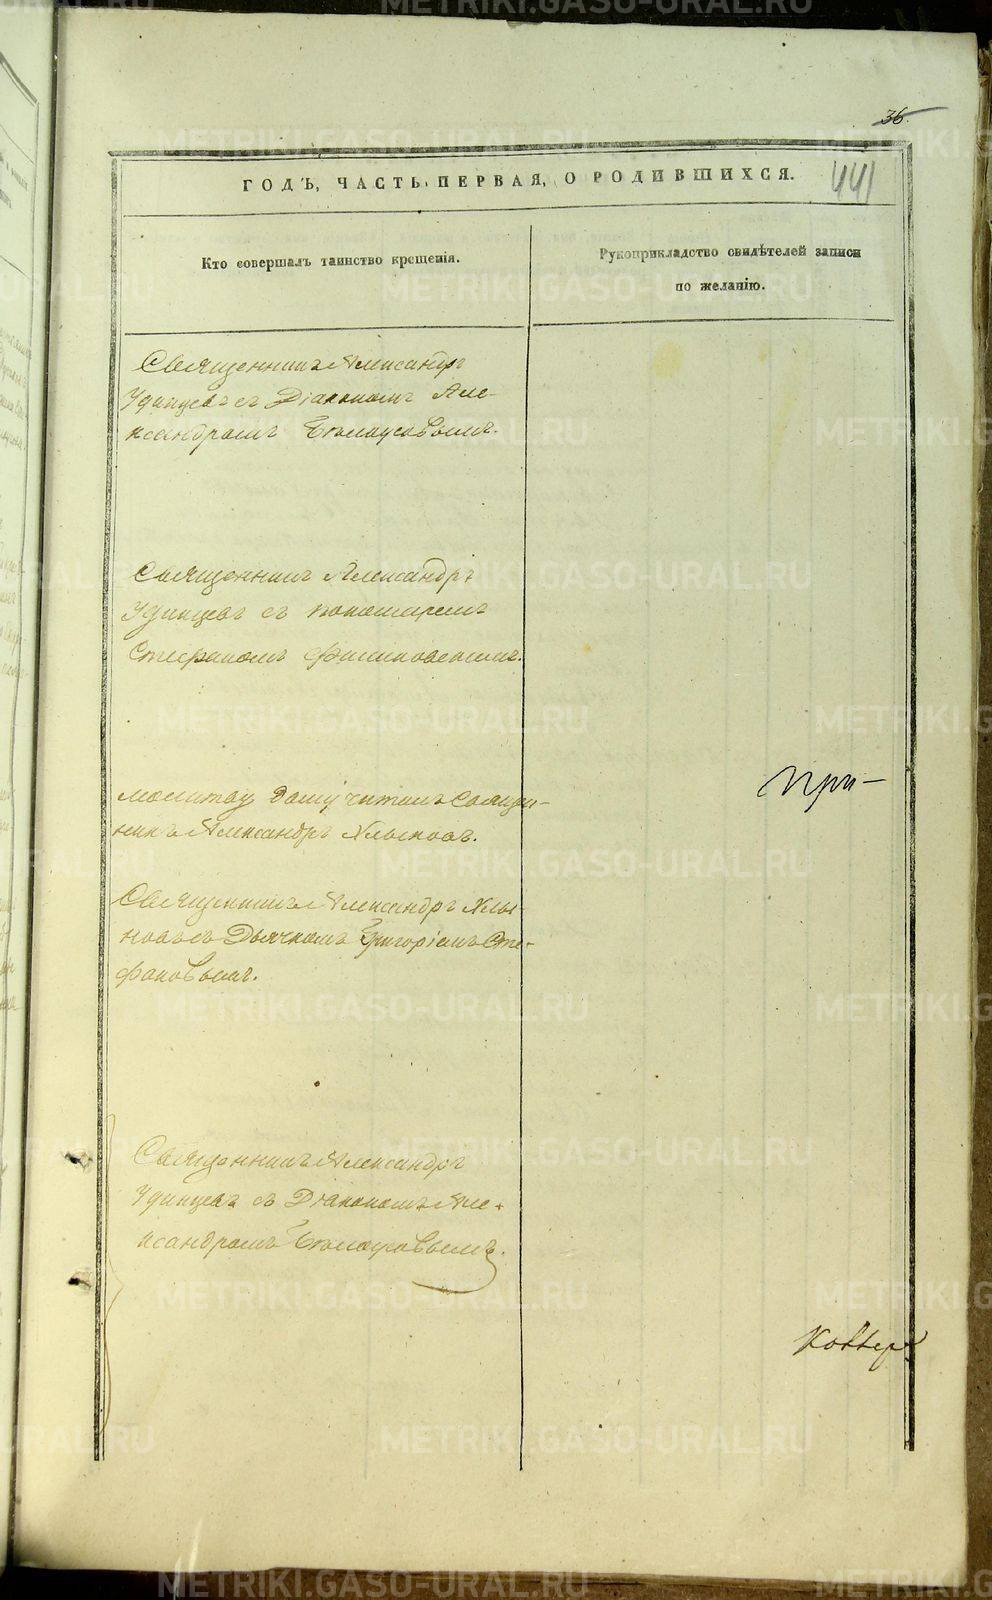 36.
ГОДЪ, ЧАСТЬ ПЕРВАЯ, О РОДИВШИХСЯ.
441
Кто совершалъ таинство крещенія.
Рукоприкладство свидѣтелей записи
по желанію.
Священникъ Александръ
Удинцевъ съ Діакономъ Але-
ксандромъ Бѣлоусовымъ.
Священникъ Александръ
Удинцевъ съ пономаремъ
Стефаномъ
молитву даму читалъ Священ-
никъ Александръ
При-
Священникъ Александръ
съ Дьячкомъ Григоріемъ Сте-
фановымъ.
Священникъ Александръ
Удинцевъ съ Діакономъ Але-
ксандромъ Бѣлоусовымъ.
METRIKI.GASO-URAL.RU